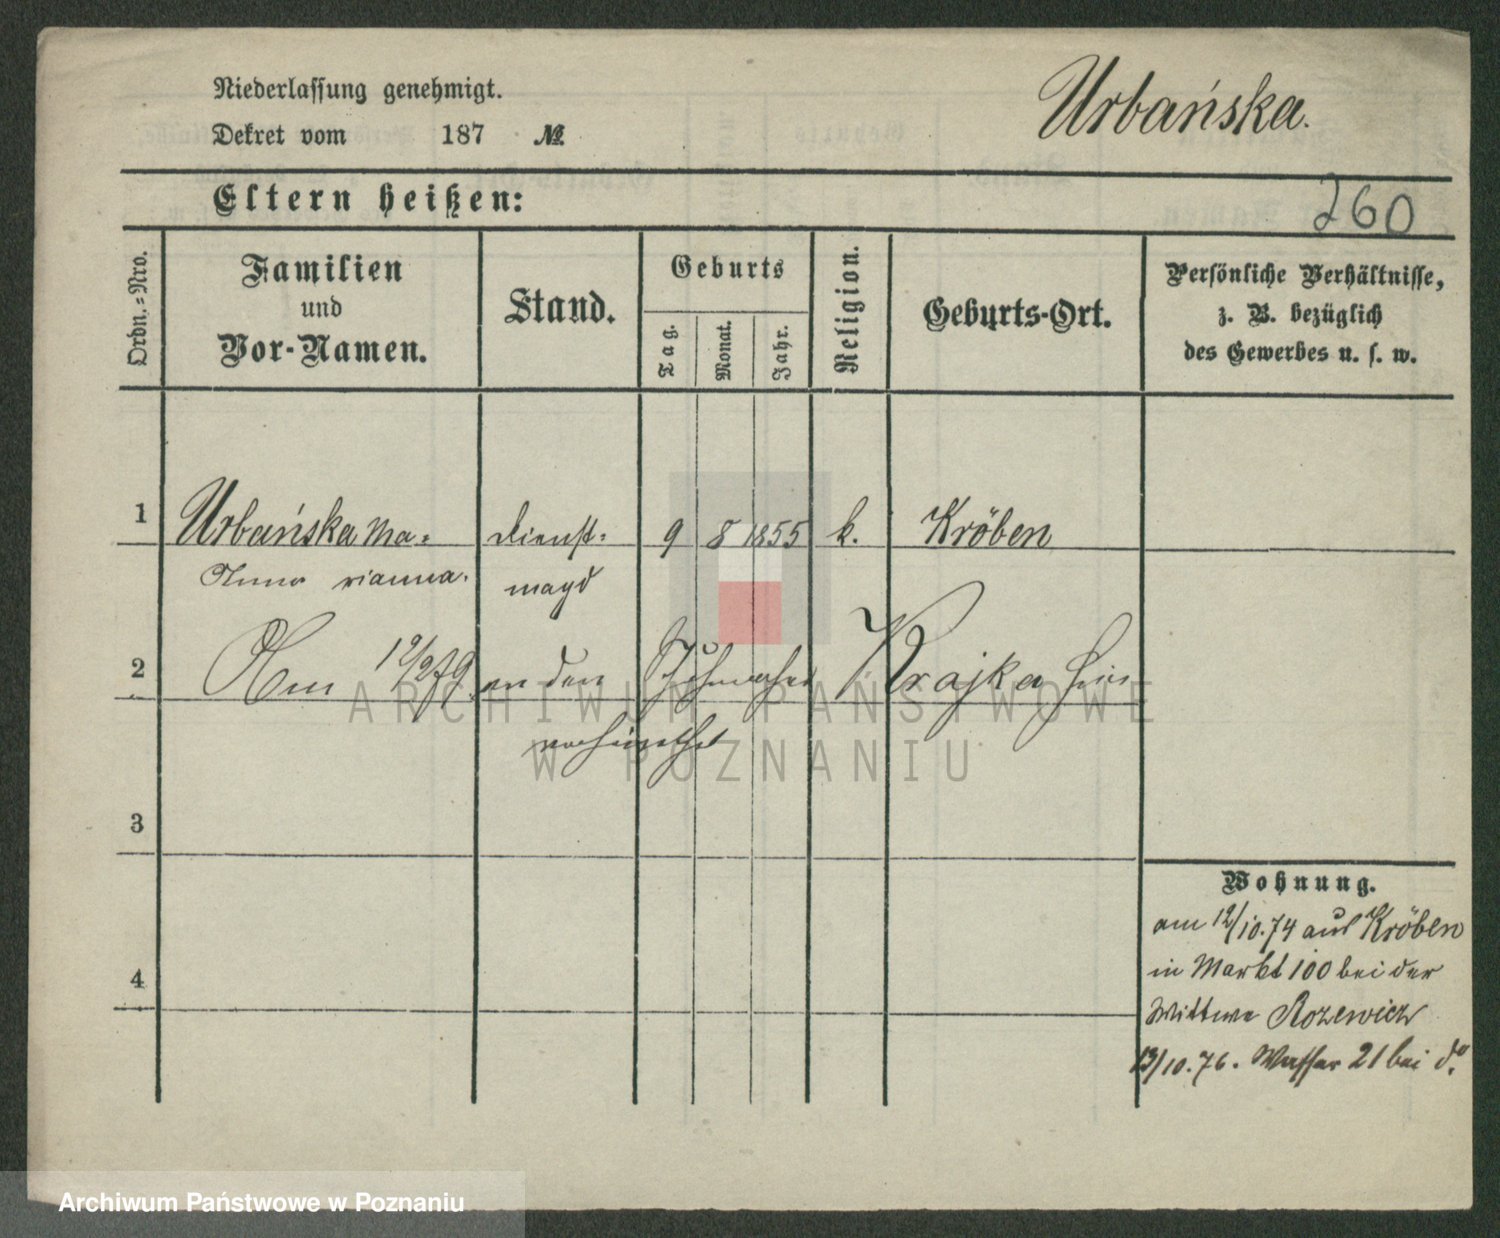 Niederlassung genehmigt.
Urbańska.
Dekret vom 187 №
Eltern heißen:
260
Ordn.=Nro.
Familien
und
Vor-Namen.
Stand.
Geburts
Tag.
Monat.
Jahr.
Religion.
Geburts-Ort.
Persönliche Verhältnisse,
z. B. bezüglich
des Gewerbes u. s. w.
1 Urbańska Ma= Dienst= 9 8 1855 k. Kröben
Anna rianna. magd
2 Am 12/2 79 an den Schuhmacher Krajka hier
verheirathet
3
4
Wohnung.
am 12/10.74 aus Kröben
in Markt 100 bei der
Wittwe Rozewicz
13/10.76. Wasser 21 bei do.
ARCHIWUM PAŃSTWOWE
W POZNANIU
Archiwum Państwowe w Poznaniu